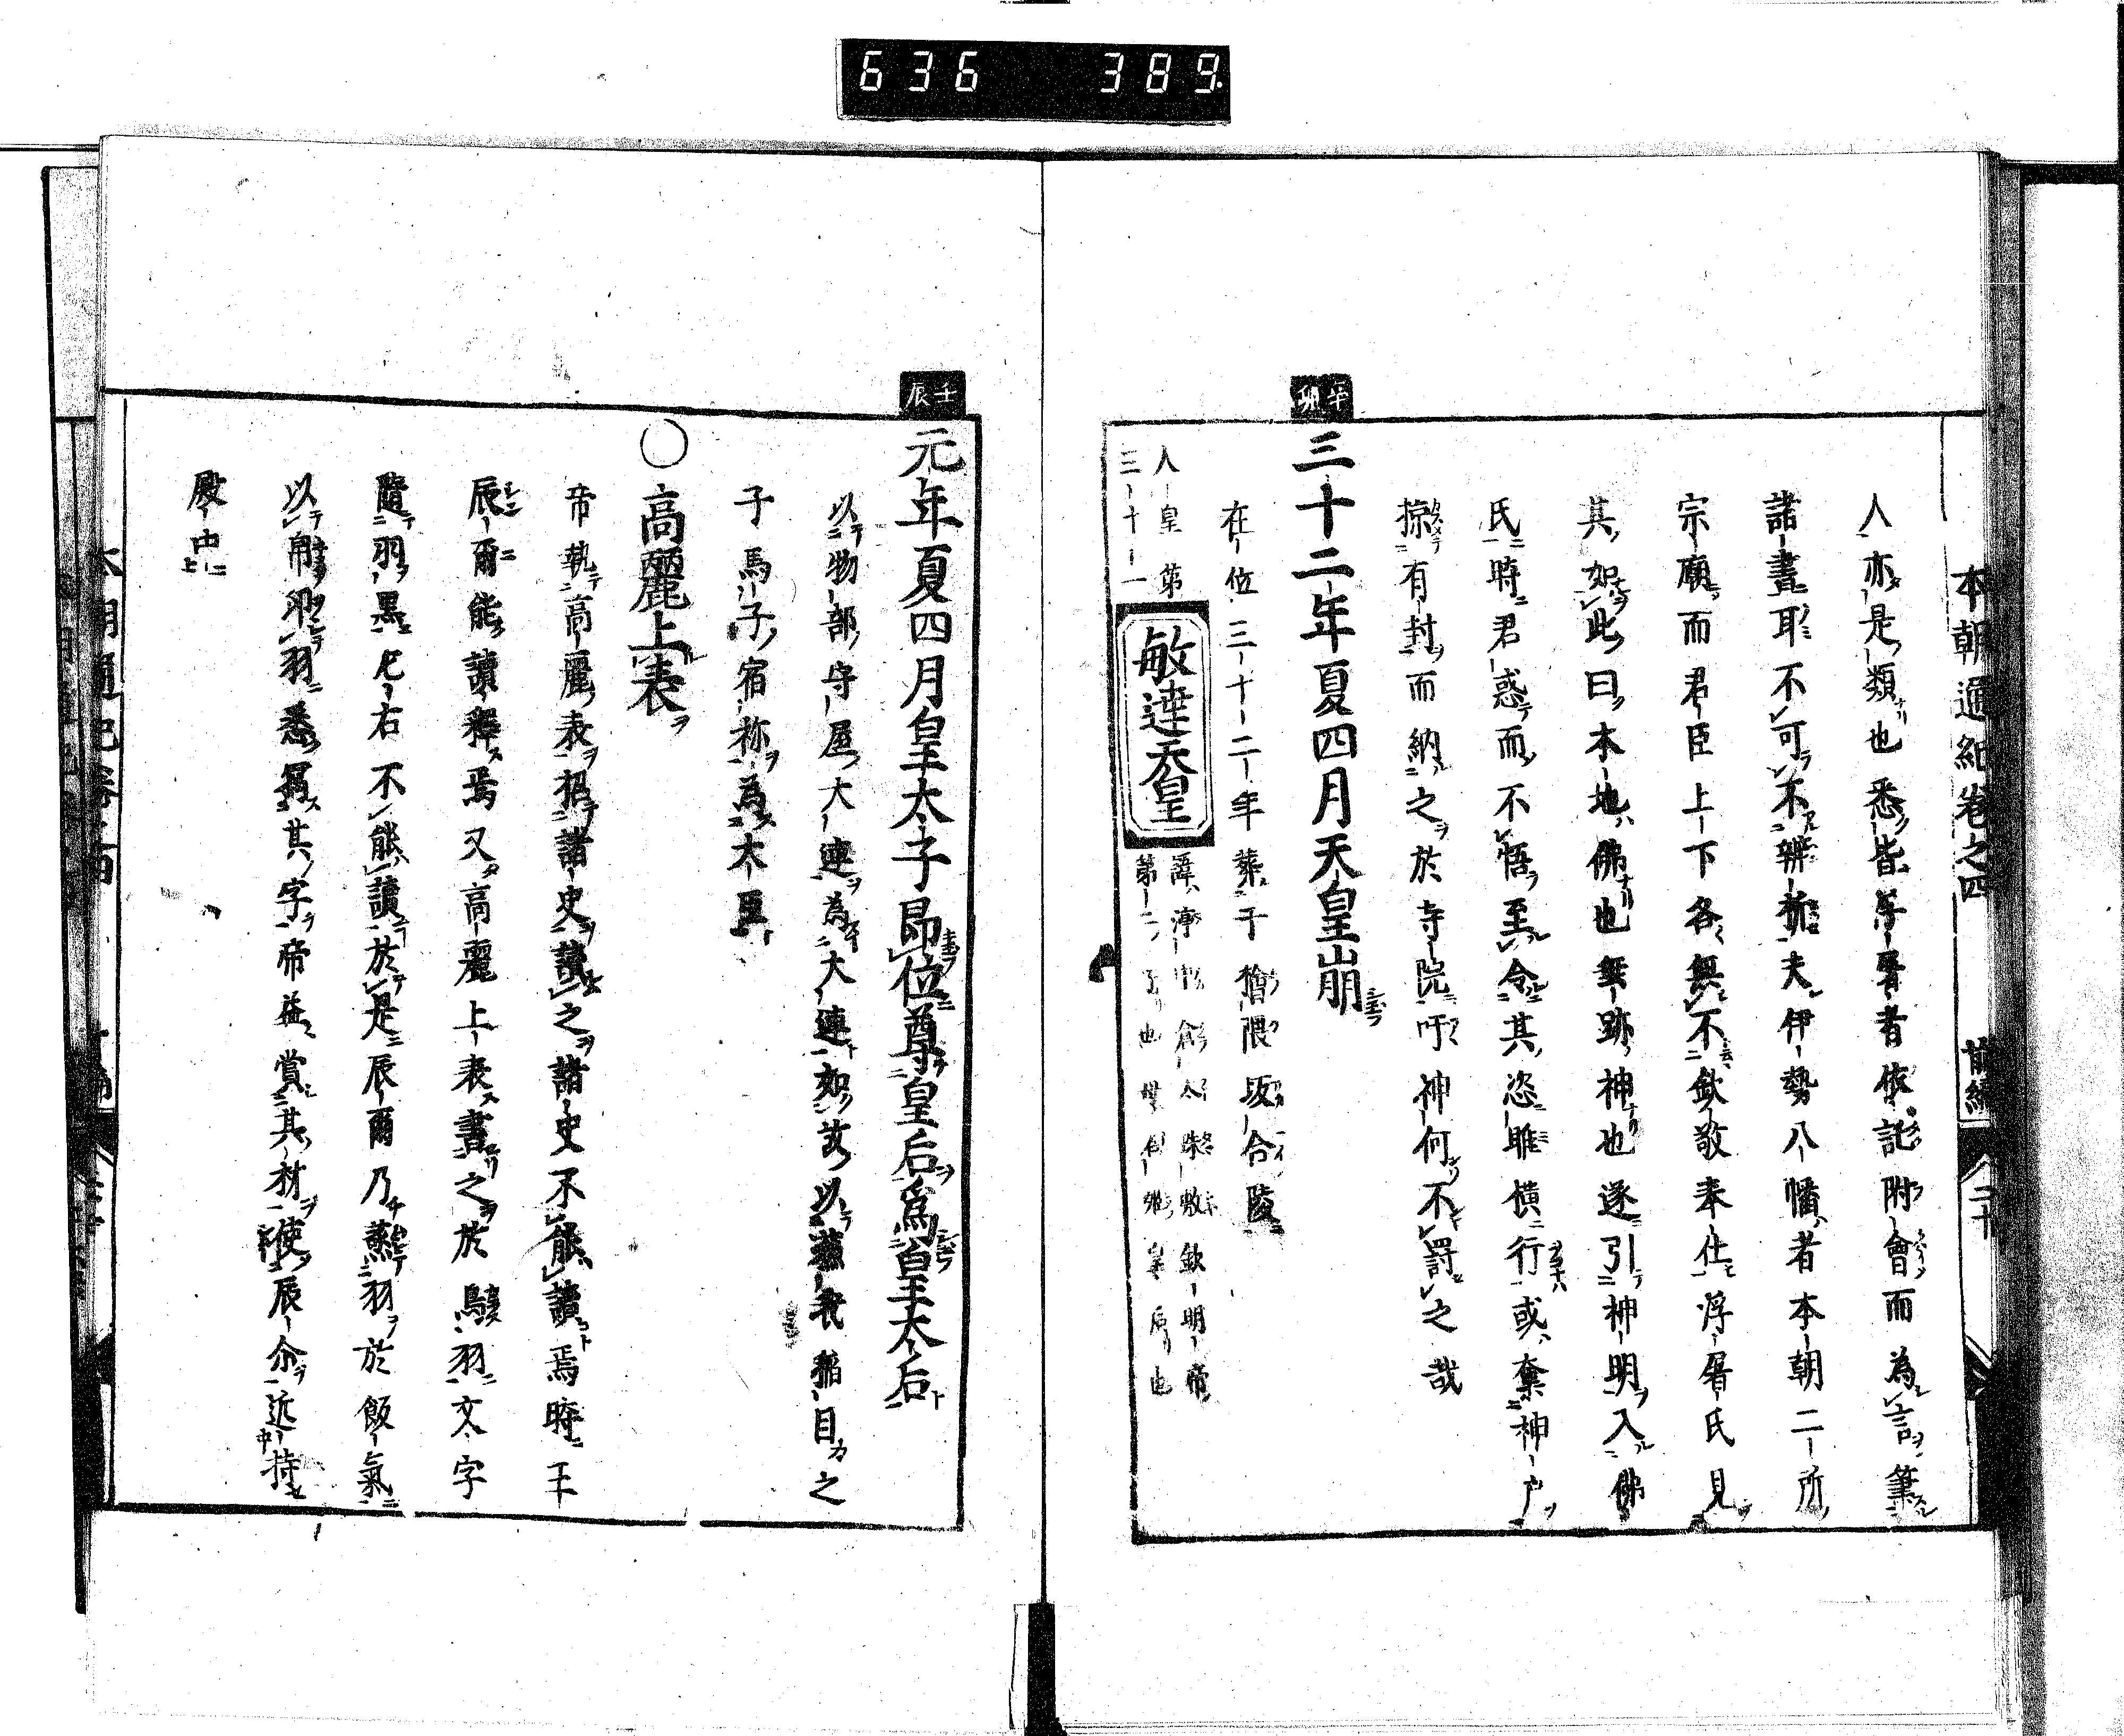 636 389
本朝通紀巻之四 前編 二十
人亦是類也悉皆浮屠者依託附會而為言筆
諸書耳不可不辨析夫伊勢八幡者本朝二所
宗廟而君臣上下各無不欽敬奉仕浮屠氏見
其如此曰本地佛也垂跡神也遂引神明入佛
氏時君惑而不悟至令其恣睢横行或奪神戸
掠有封而納之於寺院吁神何不罸之哉
辛卯
三十二年夏四月天皇崩
在位三十二年葬于檜隈坂合陵
人皇第
三十一
敏達天皇
諱渟中倉太珠敷欽明帝
第二子也母石姫皇后也
壬辰
元年夏四月皇太子即位尊皇后爲皇太后
以物部守屋大連為大連如故以蘇我稲目之
子馬子宿祢為大臣
○高麗上表
帝執高麗表招諸史讀之諸史不能讀焉時王
辰爾能讀釋焉又高麗上表書之於烏羽文字
隨羽黒凡右不能讀於是辰爾乃蒸羽於飯氣
以帛印羽悉冩其字帝益賞其材使辰尒近持
殿中